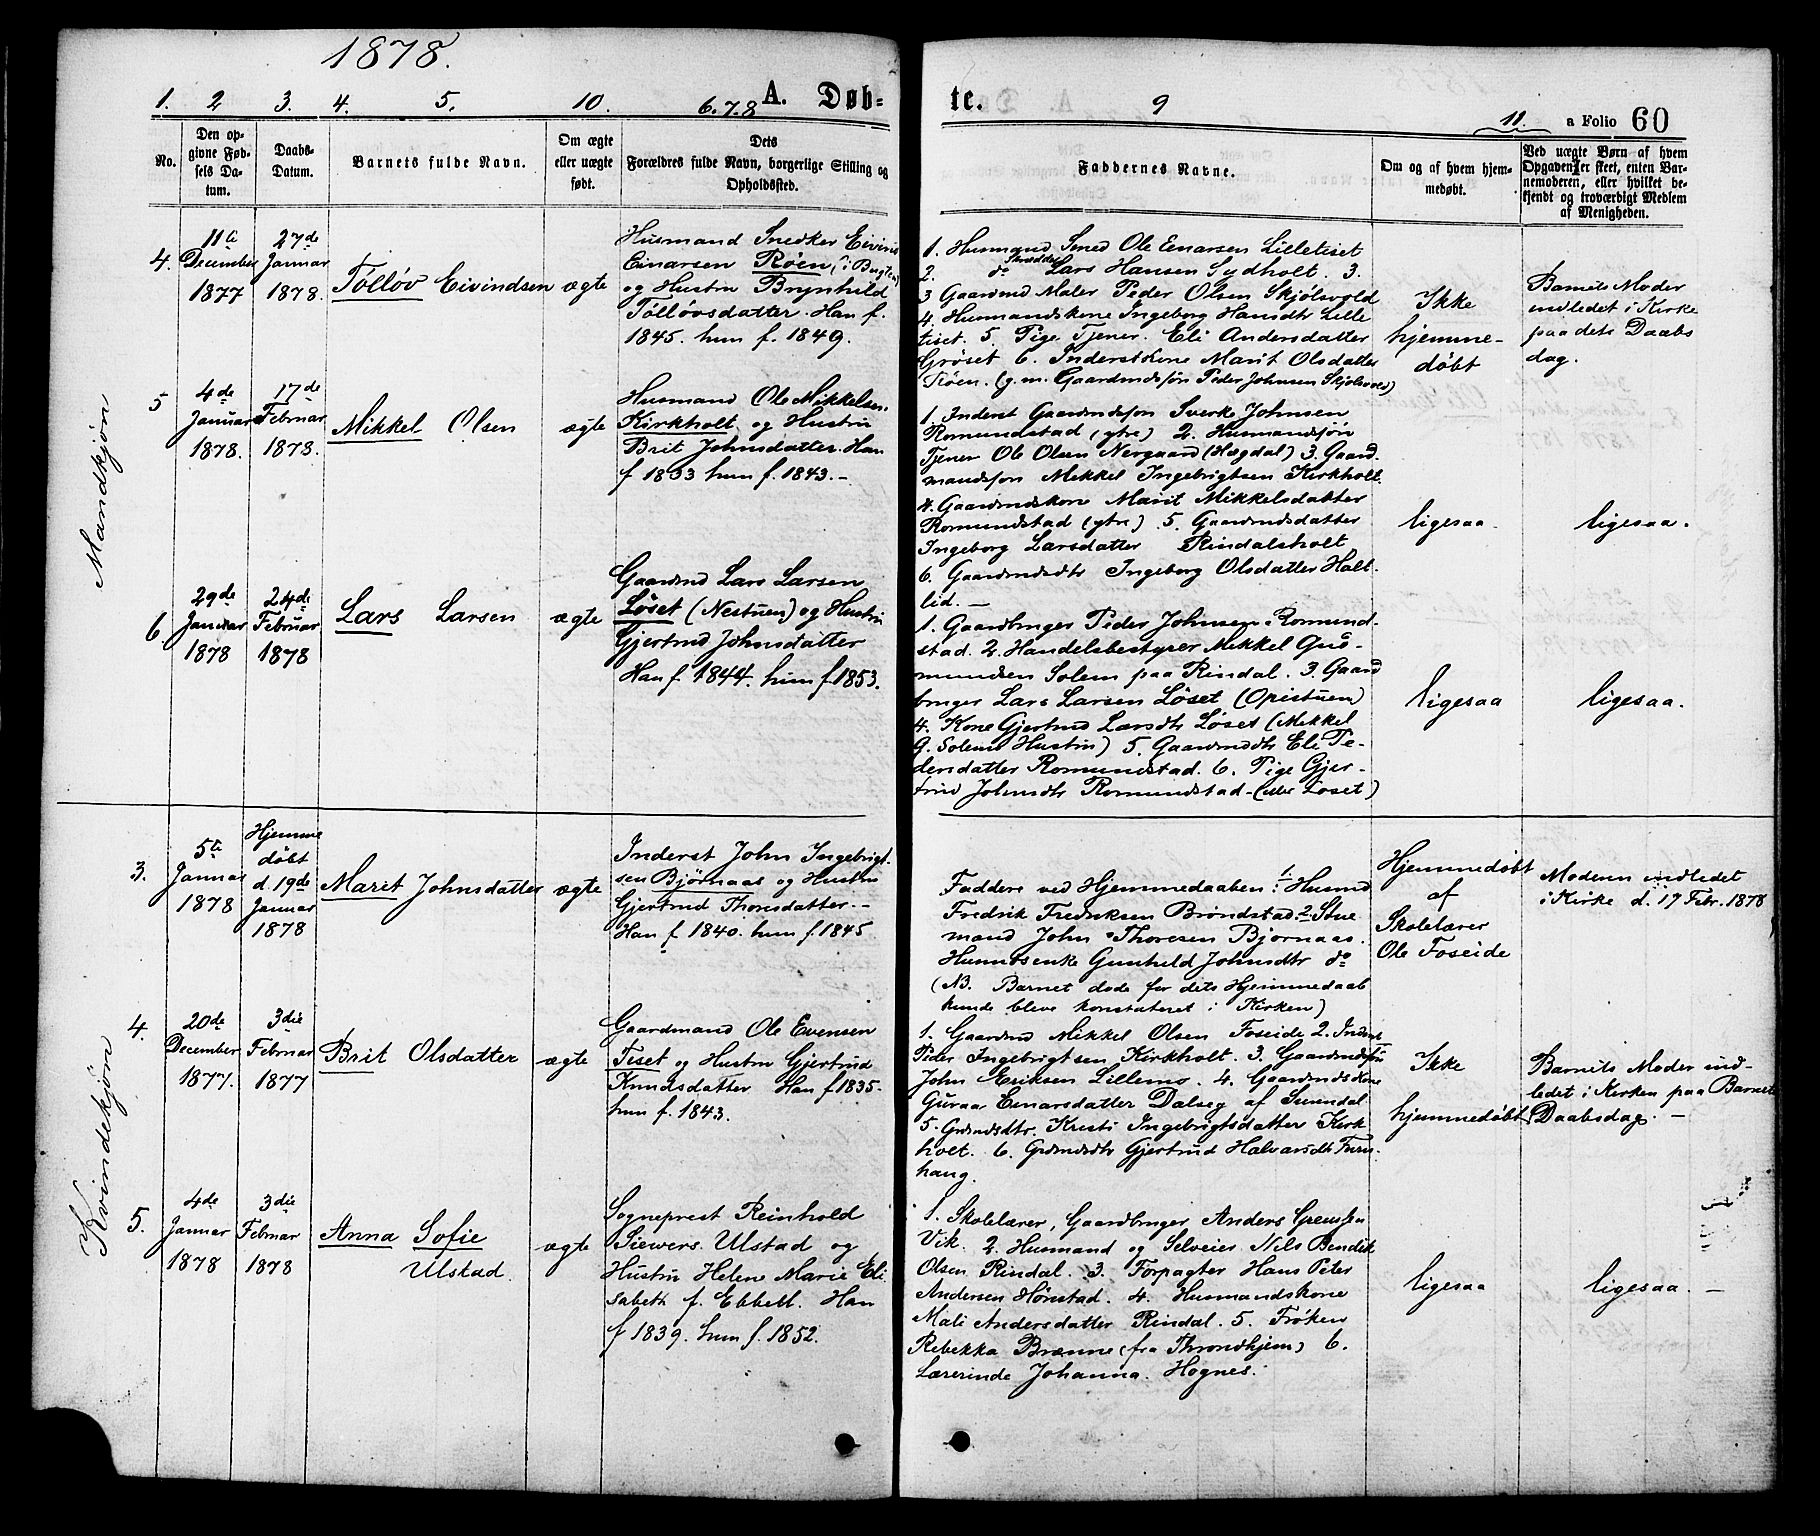 1878.
1. 2 3. 4. 5. 10. 6.7.8 A. Døb-
No.
Den op-
givne Fød-
sels Da-
tum.
Daabs-
Datum.
Barnets fulde Navn.
Om ægte
eller uægte
født.
Dets
Forældres fulde Navn, borgerlige Stilling og
Opholdssted.
Mandkjøn
4.
11te
December
1877
27de
Januar
1878.
Tølløv Eivindsen
ægte
Husmand Snedker Eivind
Einarsen Røen, (i Bugten)
og Hustru Brynhild
Tølløvsdatter. Han f.
1845. hun f. 1849.
5
4de
Januar
1878.
17de
Februar
1878.
Mikkel Olsen
ægte
Husmand Ole Mikkelsen
Kirkholt og Hustru
Brit Johnsdatter. Han
f 1833 hun f. 1843. -
6.
29de
Januar
1878
24de
Februar
1878
Lars Larsen
ægte
Gaardmd Lars Larsen
Løset (Nestuen) og Hustru
Gjertrud Johnsdatter
Han f. 1844. hun f. 1853.
Kvindekjøn
3.
5te
Januar
1878
Hjemme
døbt
d. 19de
Januar
1878
Marit Johnsdatter
ægte
Inderst John Ingebrigt-
sen Bjørnaas og Hustru
Gjertrud Thoresdatter. -
Han f. 1840. hun f. 1845
4.
20de
December
1877.
3die
Februar
1877
Brit Olsdatter
ægte
Gaardmand Ole Evensen
Tiset og Hustru Gjertrud
Knudsdatter Han f. 1835.
hun f. 1843.
5.
4de
Januar
1878
3die
Februar
1878
Anna Sofie
Ulstad.
ægte
Sogneprest Reinhold
Siewers Ulstad og
Hustru Helen Marie Eli
sabeth f. Ebbell. Han
f 1839. hun f. 1852.
te. 9 11. a Folio 60
Faddernes Navne.
Om og af hvem hjem-
medøbt.
Ved uægte Børn af hvem
Opgaven er skeet, enten Bar-
nemoderen, eller hvilket be-
kjendt og troværdigt Medlem
af Menigheden.
1. Husmand Smed Ole Einarsen Lilletiset
2. do Skrædder Lars Hansen Sydholt. 3.
3 Gaardmd Maler Peder Olsen Skjølsvold
4. Husmandskone Ingeborg Hansdtr Lille
tiset. 5. Pige Tjener. Eli Andersdatter
Grøset 6. Inderstkone Marit Olsdatter
Røen. (g.m. Gaardmdsøn Peder Johnsen Skjølsvold)
Ikke
hjemme-
døbt
Barnets Moder
indledet i Kirke
paa dets Daabs
dag.
1. Inderst Gaardmdsøn Sverke Johnsen
Romundstad (ytre) 2. Husmandsøn
Tjener Ole Olsen Nergaard (Hægdal) 3. Gaard
mandsøn Mikkel Ingebrigtsen Kirkholt.
4. Gaardmdskone Marit Mikkelsdatter
Romundstad (ytre) 5. Gaardmdsdatter
Ingeborg Larsdatter Rindalsholt
6. Gaardmdsdtr Ingeborg Olsdatter Halt-
lid. -
ligesaa.
ligesaa.
1. Gaardbruger Peder Johnsen Romund-
stad. 2. Handelsbestyrer Mikkel Gud-
mundsen Solem paa Rindal. 3. Gaard
bruger Lars Larsen Løset (Opistuen)
4. Kone Gjertrud Larsdtr Løset (Mikkel
G. Solems Hustru) 5. Gaardmddtr Eli Pe-
dersdatter Romundstad. 6. Pige Gjer-
trud Johnsdtr Romundstad - (eller Løset)
ligesaa
ligesaa.
Faddere ved Hjemmedaaben: 1. Husmd
Fredrik Fredriksen Brøndstad 2. Stue
mand John Thoresen Bjørnaas.
Husmdsenke Gunhild Johnsdtr do
(NB. Barnet døde før dets Hjemmedaab
kunde bleve konstateret i Kirken)
Hjemmedøbt
af
Skolelærer
Ole Foseide
Moderen indledet
i Kirke d. 17 Febr. 1878
1. Gaardmd Mikkel Olsen Foseide 2. Inderst
Peder Ingebrigtsen Kirkholt. 3. Gaardmdsøn
John Eriksen Lillemo. 4. Gaardmdskone
Guraa Einarsdatter Dalseg af Sundal
5. Grdmdsdtr. Kristi Ingebrigtsdatter Kirk
holt. 6. Grdmdsdtr Gjertrud Halvarsdtr Furu-
haug.
Ikke
hjemmedøbt
Barnets Moder ind-
ledet i Kirken paa Barnets
Daabsdag. -
1. Skolelærer, Gaardbruger Anders Gremsen
Vik. 2. Husmand og Selveier Nils Bendik
Olsen Rindal. 3. Forpagter Hans Peter
Andersen Hønstad. 4. Husmandskone
Mali Andersdatter Rindal. 5. Frøken
Rebekka Brænne (fra Throndhjem) 6.
Lærerinde Johanna Hognes.
ligesaa
ligesaa. -